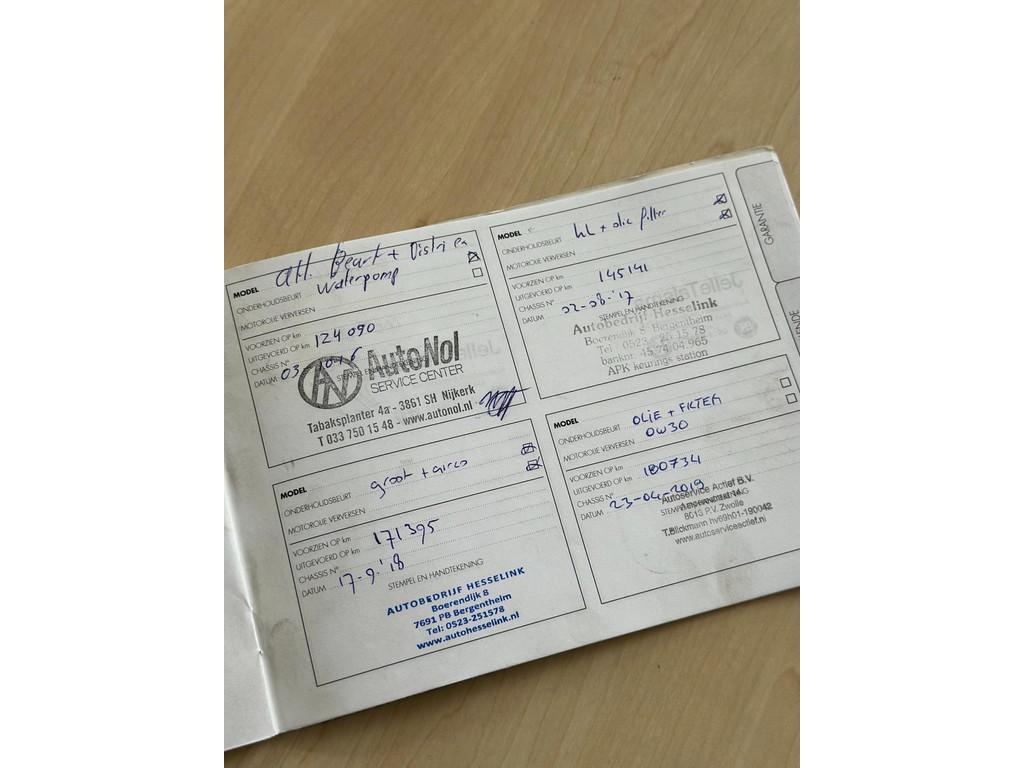 Beurt + Distri en
Waterpomp
MODEL
ONDERHOUDSBEURT
MOTOROLIE VERVERSEN
VOORZIEN OP km
UITGEVOERD OP km 124090
CHASSIS N°
DATUM 03
STEMPEL EN
AutoNol
SERVICE CENTER
Tabaksplanter 4a - 3861 SH Nijkerk
T 033 750 15 48 - www.autonol.nl
MODEL
ONDERHOUDSBEURT kl + olie filter
MOTOROLIE VERVERSEN
VOORZIEN OP km
UITGEVOERD OP km 145141
CHASSIS N°
DATUM 02-08-'17
STEMPEL EN HANDTEKENING
Autobedrijf Hesselink
Boerendijk 8 Bergentheim
Tel 0523 - 25 15 78
banknr. 45.74.04.965
APK keurings station
GARANTIE
MODEL
ONDERHOUDSBEURT groot + airco
MOTOROLIE VERVERSEN
VOORZIEN OP km
UITGEVOERD OP km 171395
CHASSIS N°
DATUM 17-9-'18
STEMPEL EN HANDTEKENING
AUTOBEDRIJF HESSELINK
Boerendijk 8
7691 PB Bergentheim
Tel: 0523-251578
www.autohesselink.nl
MODEL
ONDERHOUDSBEURT OLIE + FILTER
MOTOROLIE VERVERSEN 0W30
VOORZIEN OP km
UITGEVOERD OP km 180734
CHASSIS N°
DATUM 23-04-2019
Autoservice Actief B.V.
8013 P.V. Zwolle
T.Blickmann hv69h01-190042
www.autoserviceactief.nl